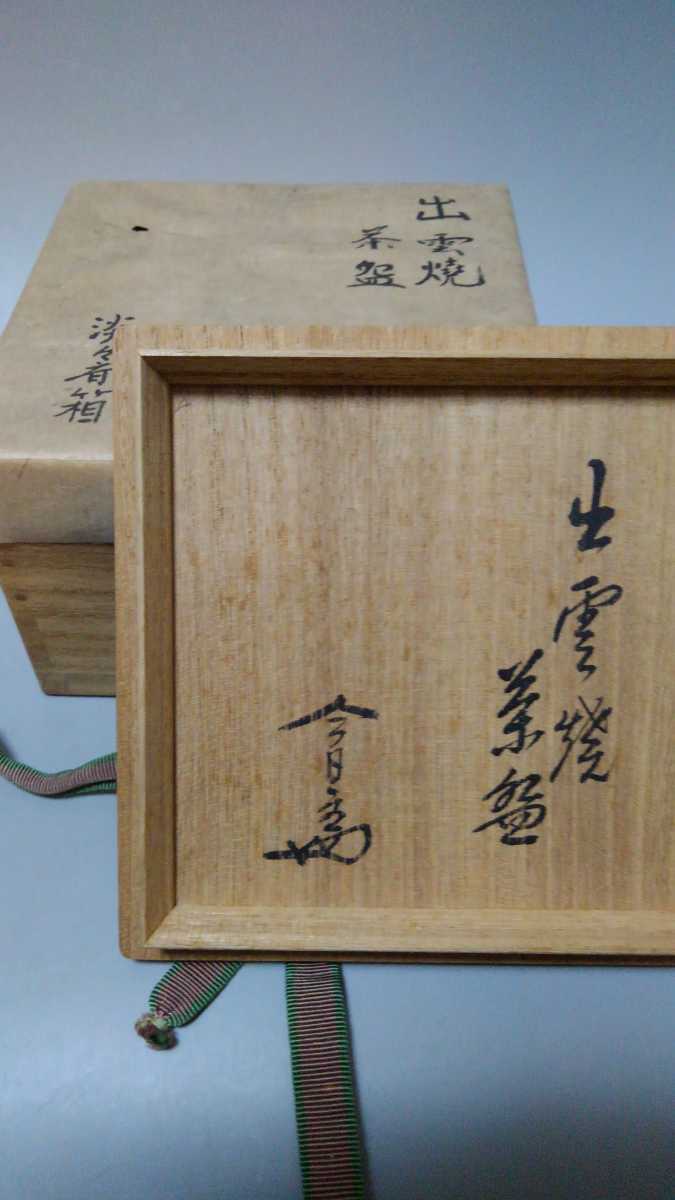 出雲燒
茶盌
淡々斎箱
出雲燒
茶盌
今日庵